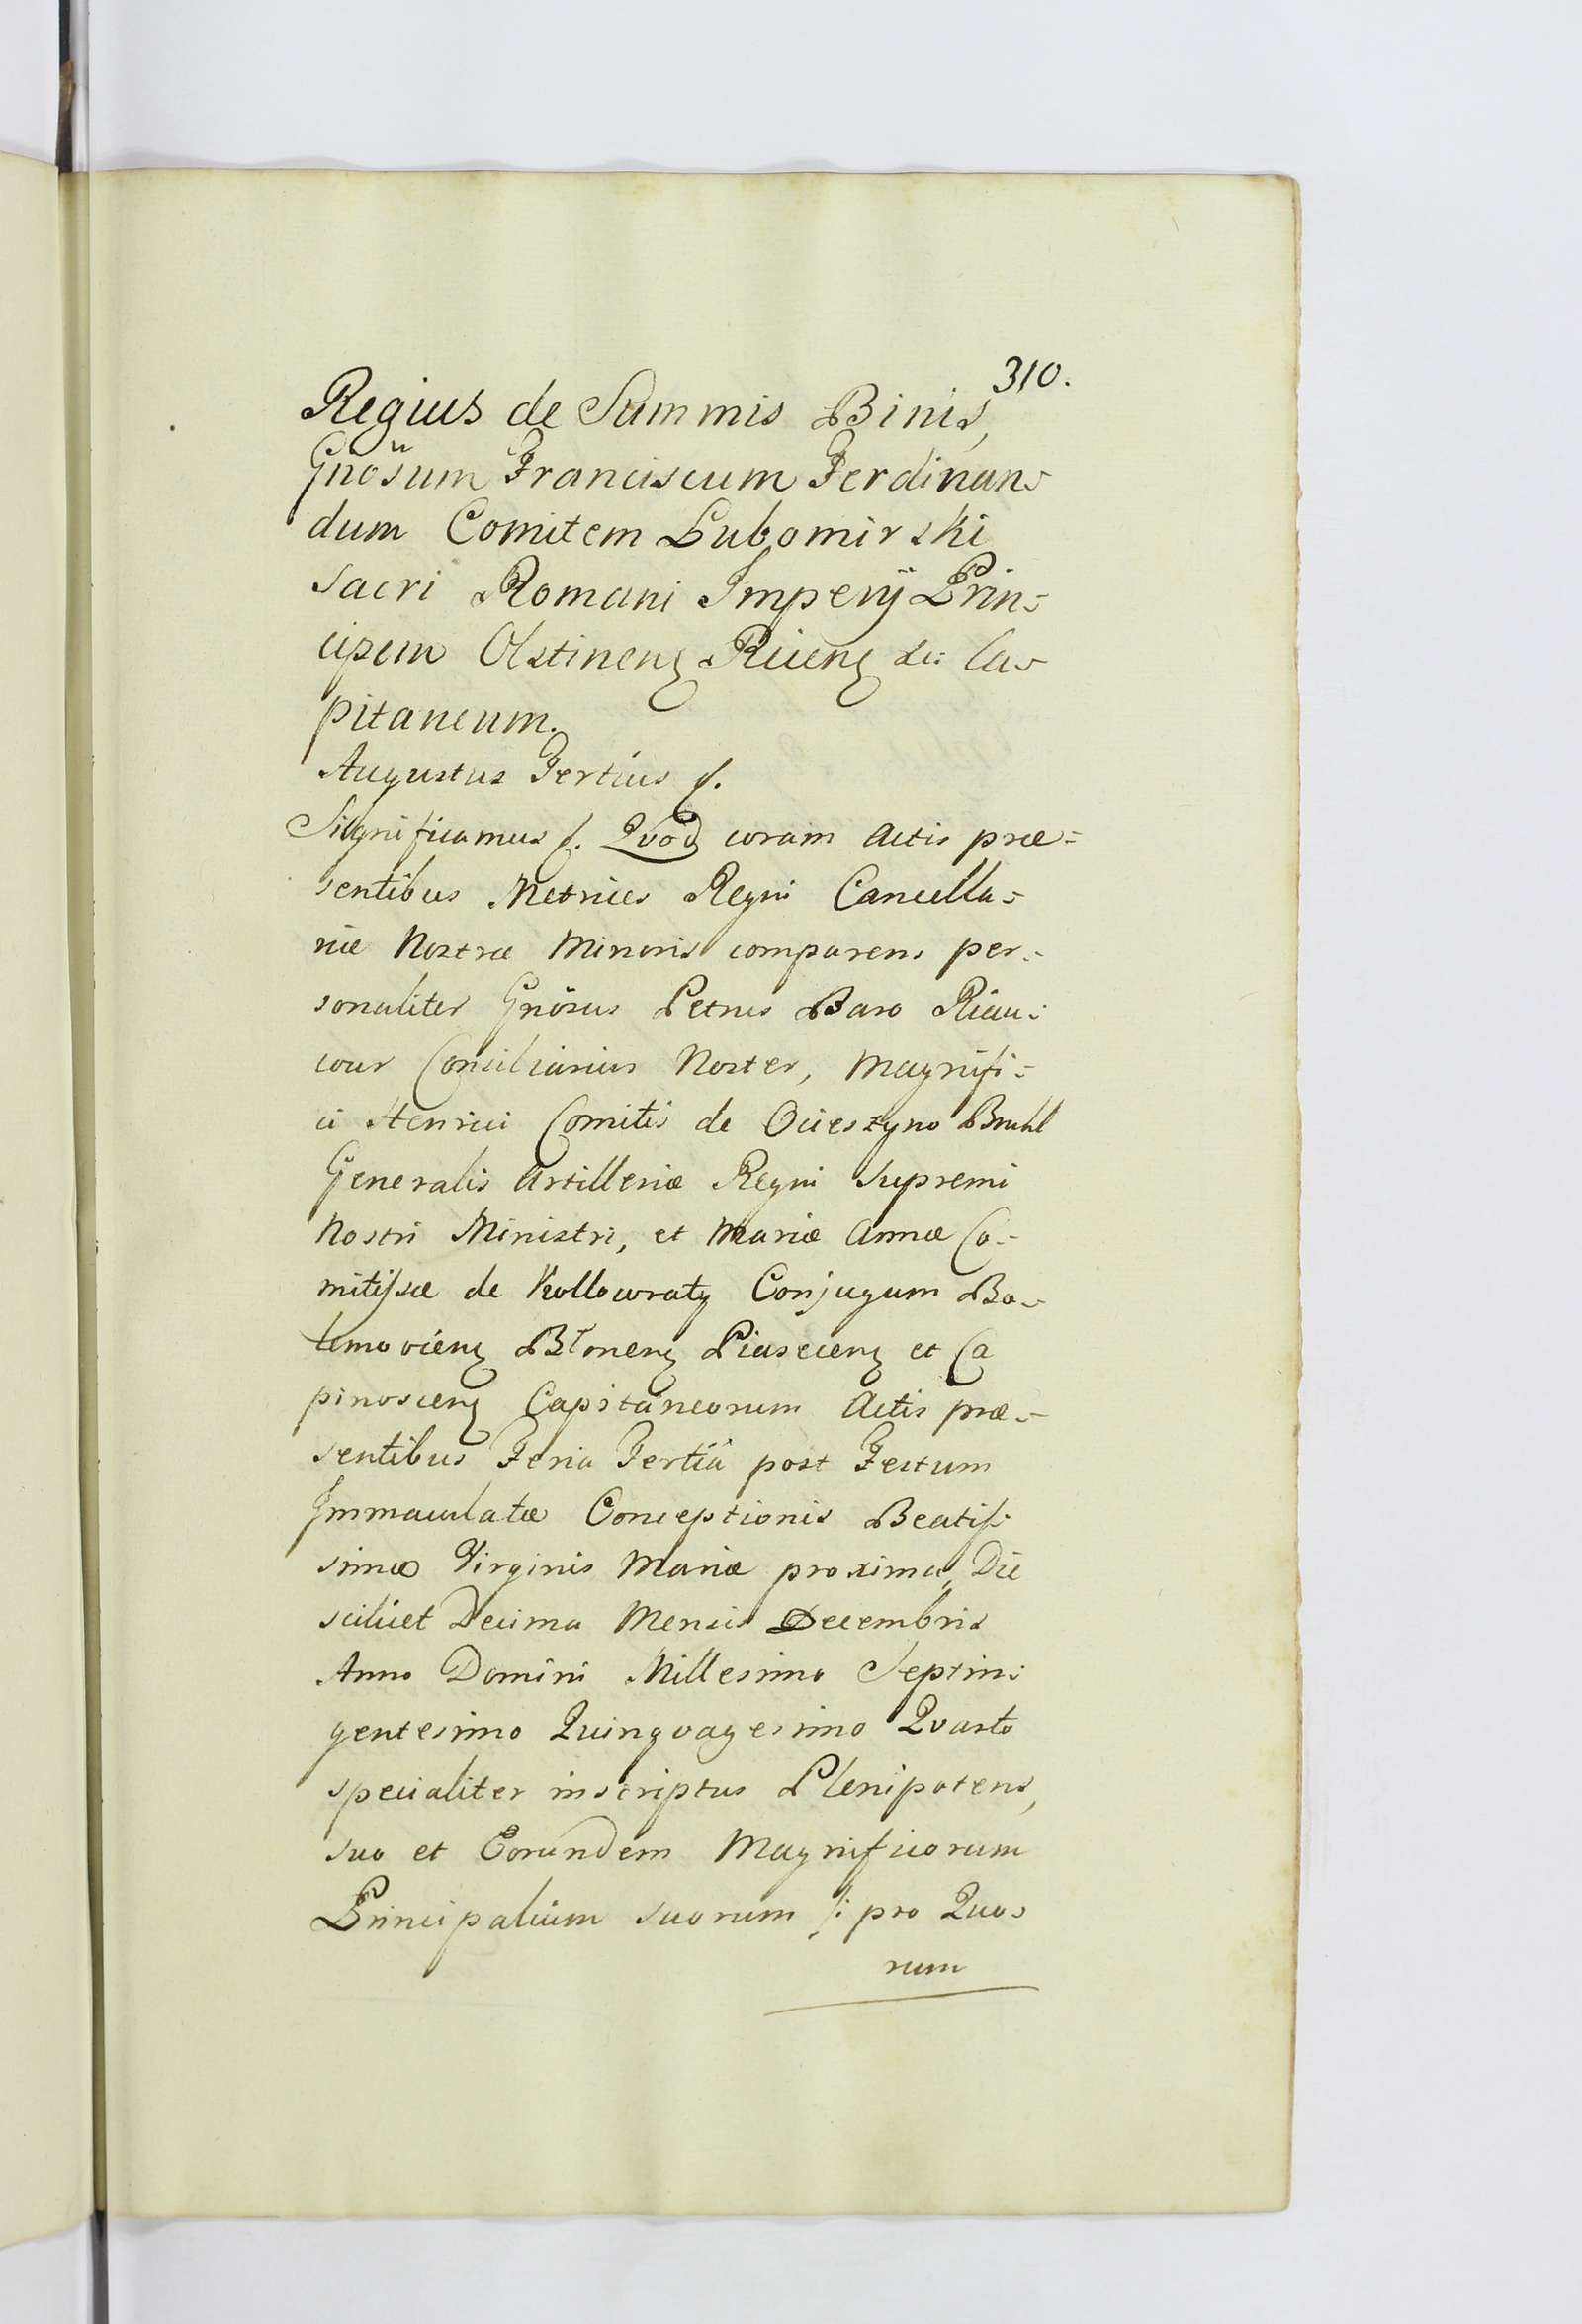 310.
Regius de Summis Binis,
Gnősum Franciscum Ferdinan-
dum Comitem Lubomirski
Sacri Romani Imperij Prin-
cipem Olstinenȝ Ricenȝ &c: Ca-
pitaneum.
Augustus Tertius ſ.
Significamus ſ. Quod coram Actis præ=
sentibus Metrices Regni Cancella=
riæ Nostræ Minoris comparens per-
sonaliter Gnősus Petrus Baro Riau-
cour Consiliarius Noster, Magnifi=
ci Henrici Comitis de Ocieszyno Bruhl
Generalis Artilleriæ Regni Supremi
Nostri Ministri, et Mariæ Annæ Co-
mitissæ de Kollowraty Conjugum Bo-
lemovienȝ Błonenȝ Piasecenȝ et Ca
pinoscenȝ Capitaneorum Actis præ-
sentibus Feria Tertiâ post Festum
Immaculatæ Conceptionis Beatis-
simæ Virginis Mariæ proxima, Die
scilicet Decima Mensis Decembris
Anno Domini Millesimo Septin-
gentesimo Quinqvagesimo Qvarto
specialiter inscriptus Plenipotens,
suo et Eorundem Magnificorum
Principalium suorum /: pro Quo-
rum